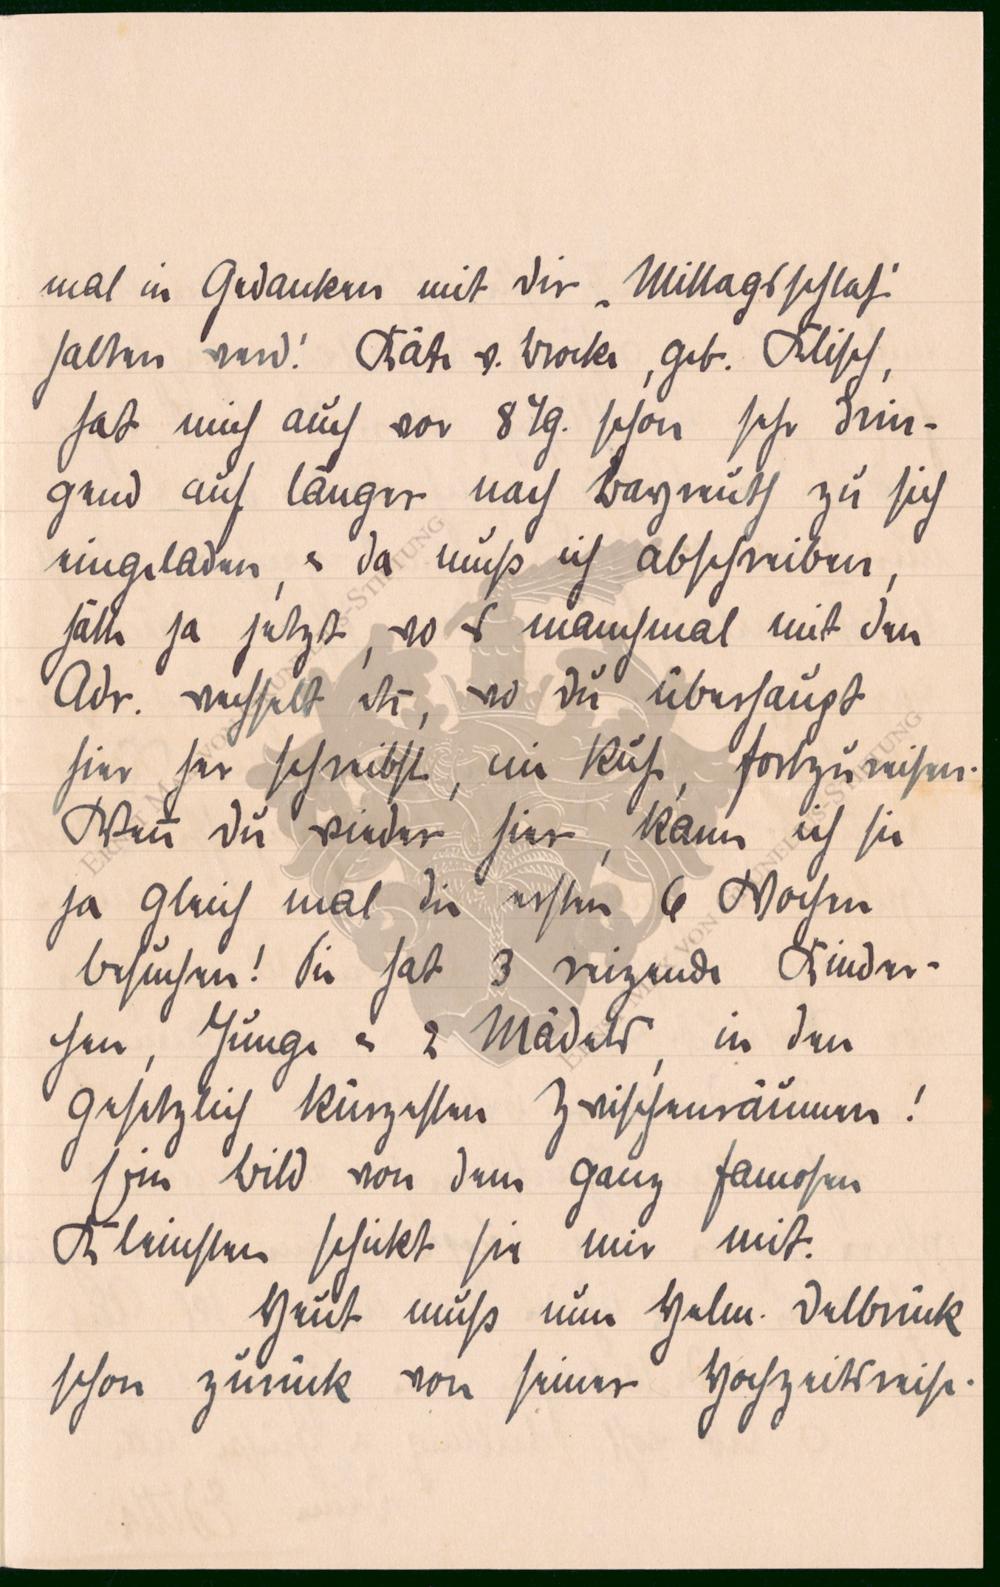 mal in Gedanken mit dir „Mittagsschlaf“
halten werd! Käte v. Brocke, geb. Klisch,
hat mich auch vor 8 Tg. schon sehr drin-
gend auf länger nach Bayreuth zu sich
eingeladen, & da muß ich abschreiben,
hätte ja jetzt, wo s manchmal mit den
Adr. wechselt etc, wo du überhaupt
hier her schreibst, nie Ruh, fortzureisen.
Wen̄ du wieder hier, kann ich sie
ja gleich mal die ersten 6 Wochen
besuchen! Sie hat 3 reizende Kinder-
chen, Junge & 2 Mädels, in den
gesetzlich kürzesten Zwischenräumen!
Ein Bild von dem ganz famosen
Kleinsten schickt sie mir mit.
Heut muß nun Helm. Delbrück
schon zurück von seiner Hochzeitsreise.